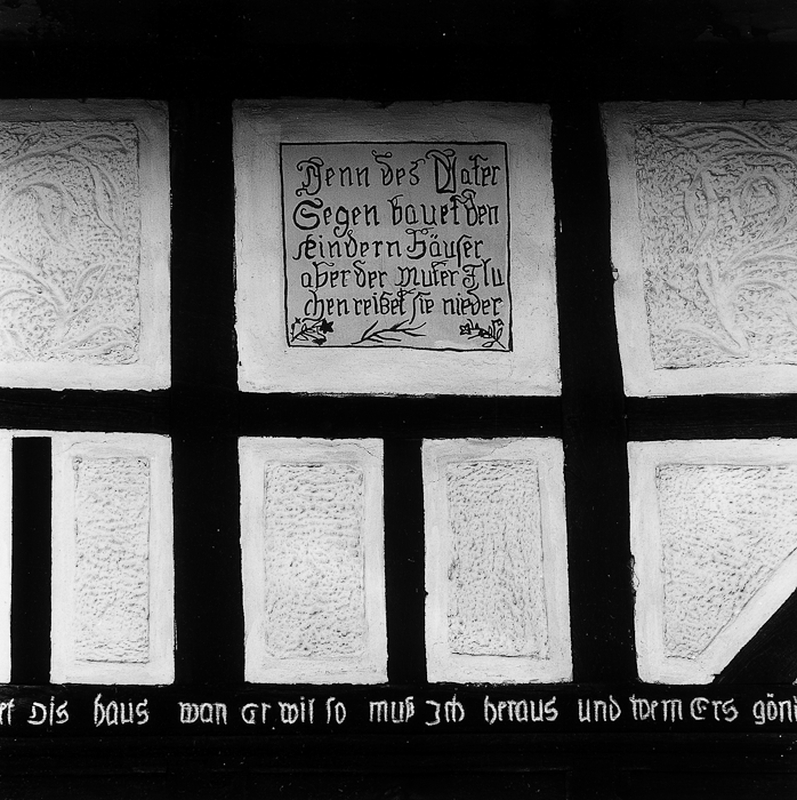 Denn des Vater
Segen bauet den
Kindern Häuser
aber der Muter Flu
chen reißet sie nieder
et Dis haus wan Er wil so muß Ich heraus und wem Ers gön